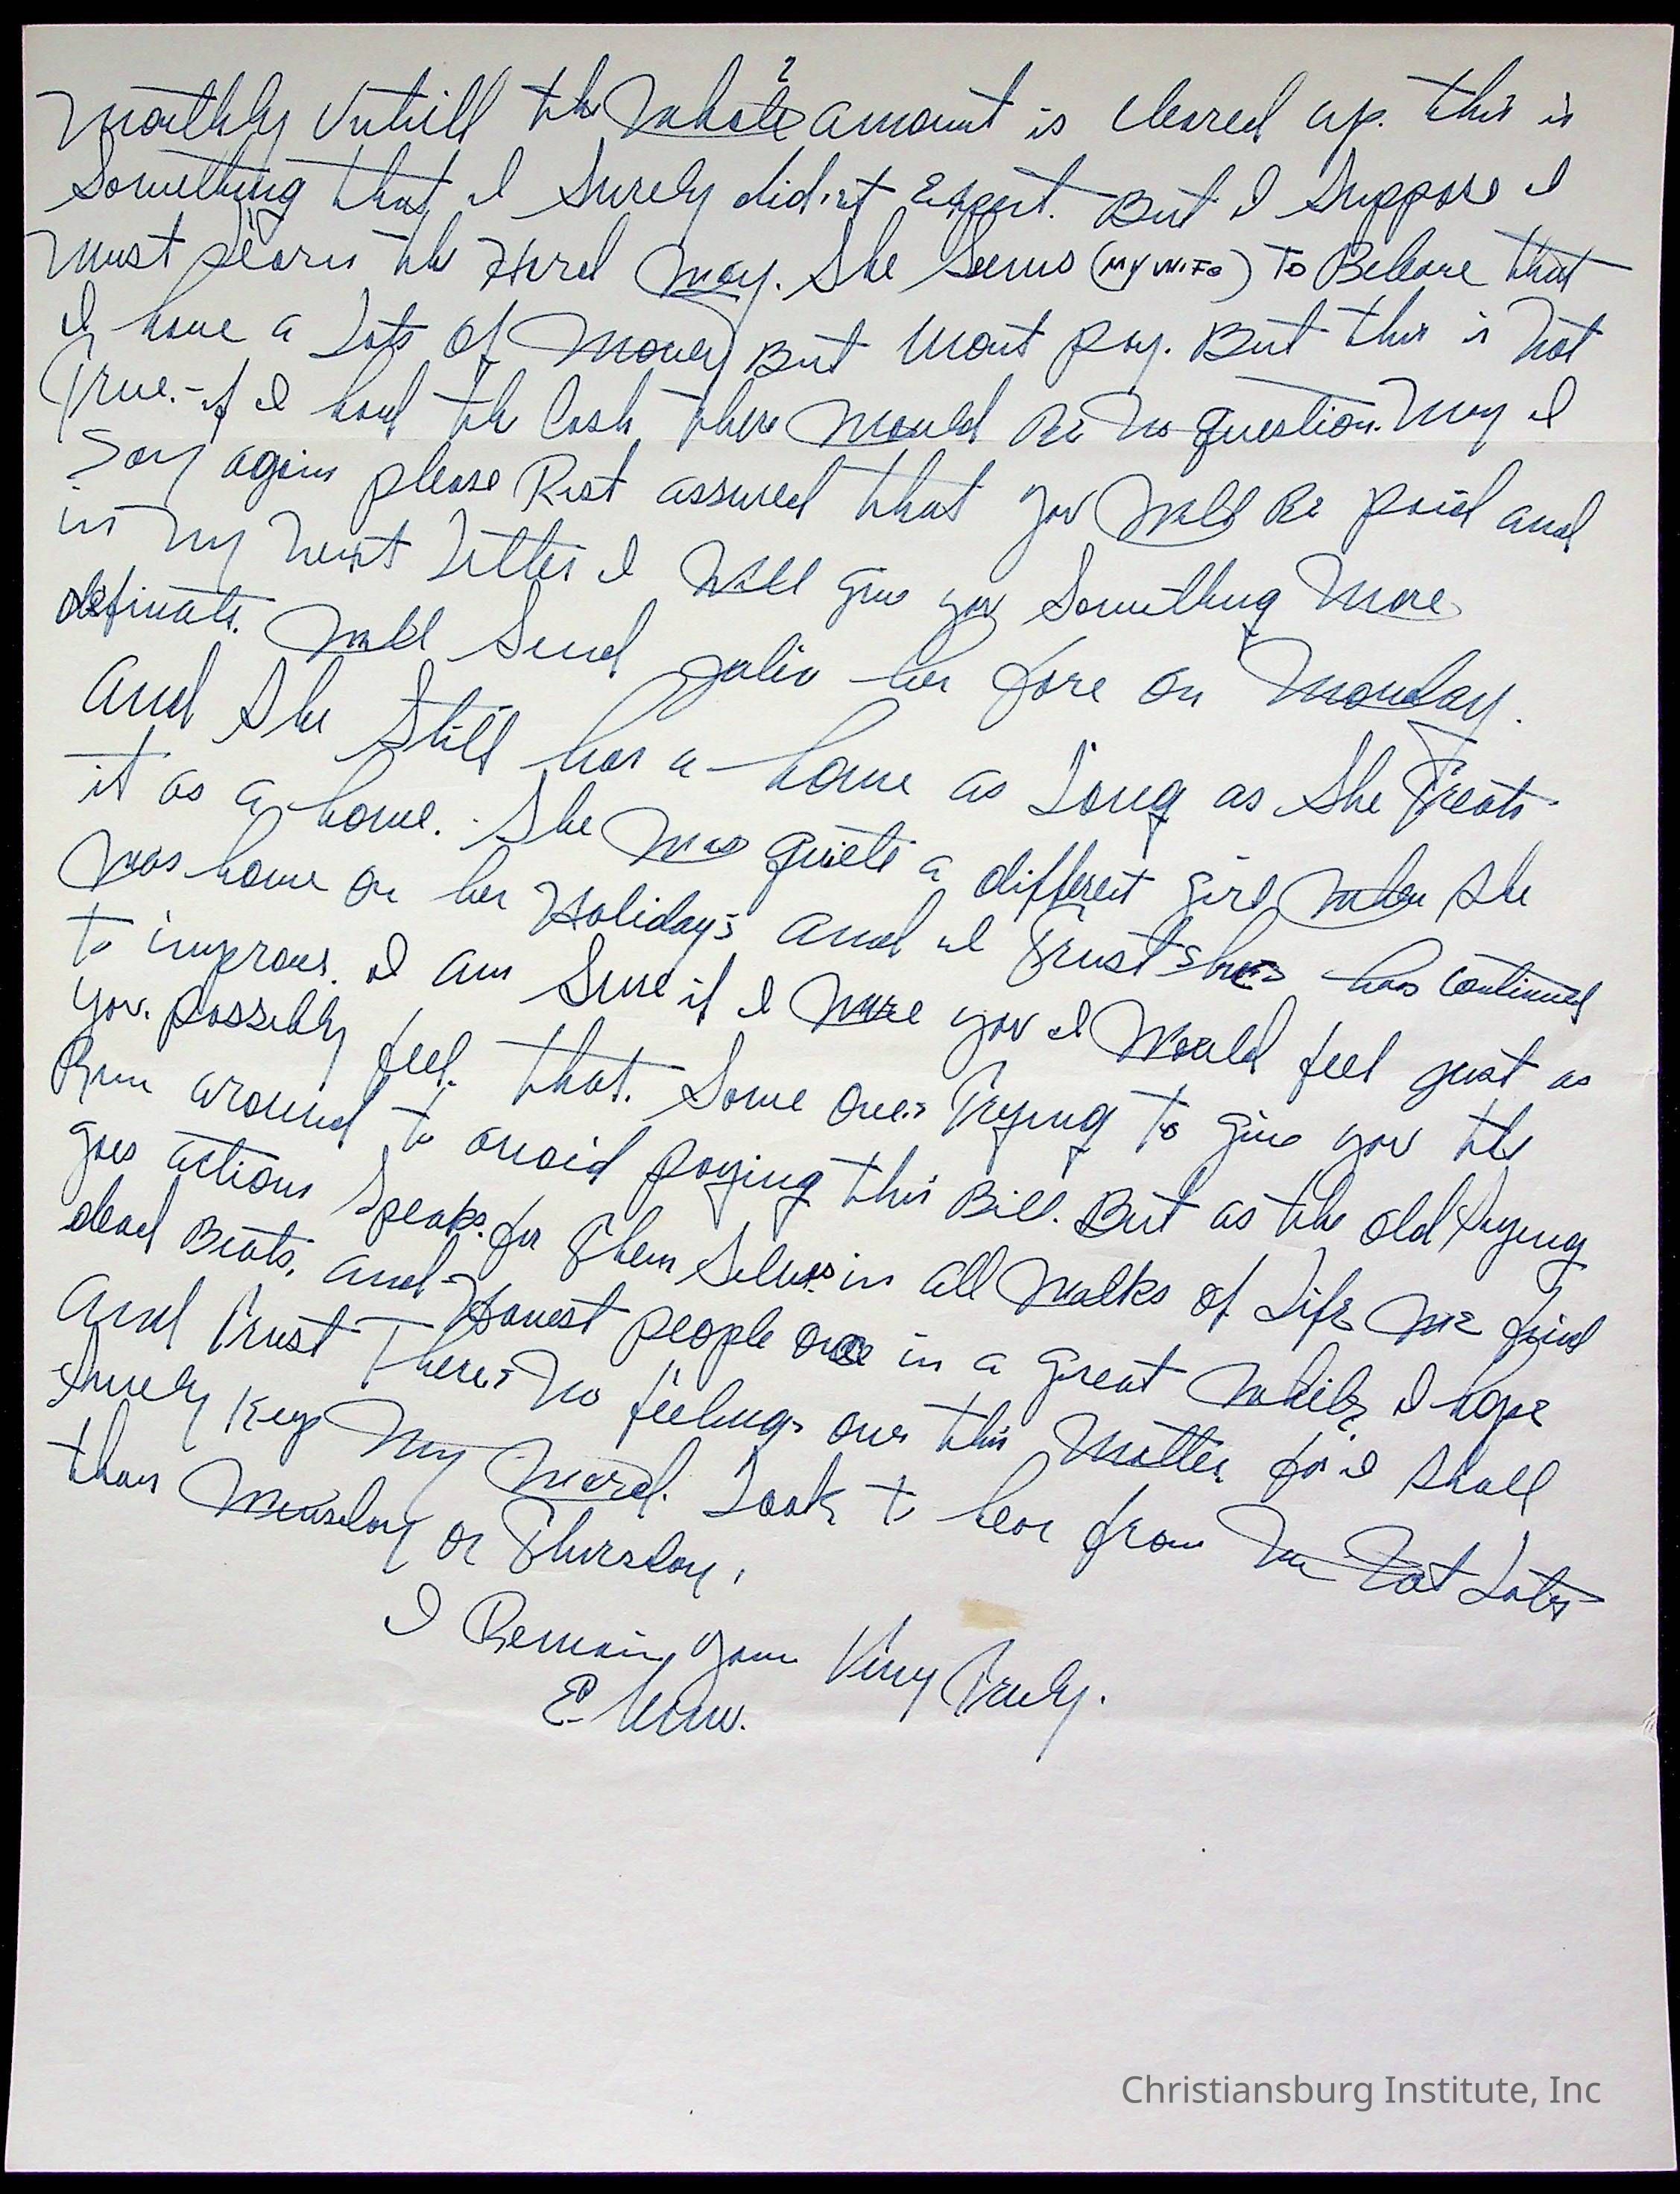 2
Monthly Untill the Whole amount is cleared up. this is
Something that I Surely did,nt Expect. But I Suppose I
Must Learn the Hard Way. She Seems (MY WIFE) To Beleave that
I have a Lots of Money But Wont pay. But this is Not
True.- if I had the Cash there Would Be No question. May I
Say again please Rest assured that you Will Be paid and
in my Next Letter I Will give you Something More
definate. Will Send Julia her fare on Monday.
And She Still has a home as Long as She Treats
it as a home. She Was quiete a different girl When She
Was home on her Holidays and I Trust She has continued
to improve. I am Sure if I Were you I Would feel just as
you possibly feel. that. Some one's Trying to give you the
Run around to avoid paying this Bill. But as the old Saying
goes actions Speaks for Them Selves in all Walks of Life We find
dead Beats, and Honest people once in a great While, I hope
And Trust There's No feelings over this Matter for I Shall
Surely Keep My Word. Look to hear from Me Not Later
than Wensday or Thursday,
I Remain your Very Truly.
E.
Christiansburg Institute, Inc